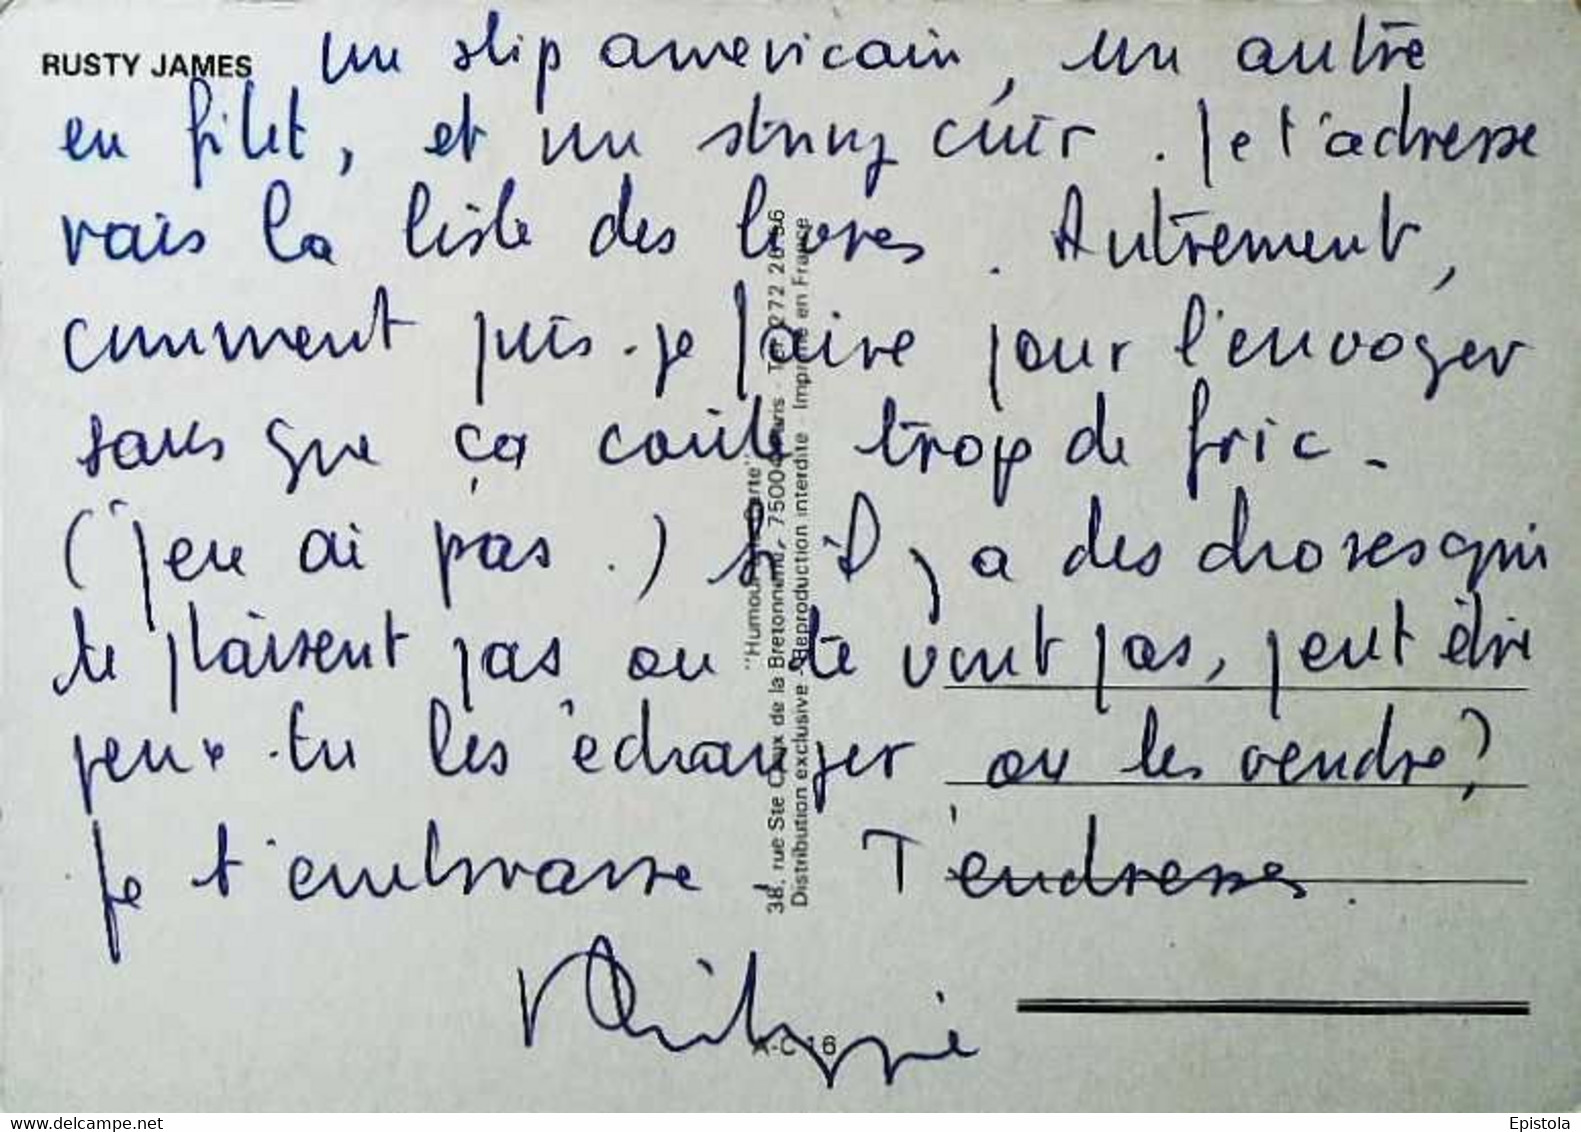 RUSTY JAMES
un slip americain, un autre
en filet, et un string cuir. Je t'adresse
vais la liste des livres. Autrement,
comment puis-je faire pour l'envoyer
sans que ça coûte trop de fric -
(j'en ai pas.) S'il y a des choses qui
te plaisent pas ou te vont pas, peut être
peux-tu les échanger ou les vendre?
Je t'embrasse. Tendresses.
Philippe
"Humour à la Carte"
38, rue Ste Croix de la Bretonnerie, 75004 Paris - Tel 272 26
Distribution exclusive - Reproduction interdite - Imprimé en France
A-C 16
delcampe.net
Epistola